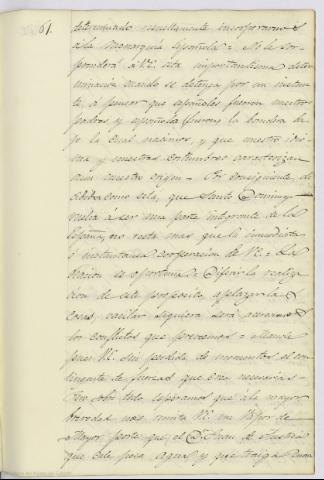 61.
determinado resueltamente incorporarnos
a la Monarquía española = No le sor-
prenderá á V.E. esta importantísima deter-
minación cuando se detenga por un instan-
te, á pensar que españoles fueron nuestros
padres, y española fue la bandera ba-
jo la cual nacimos, y que nuestro idio-
ma y nuestras costumbres caracterizan
aun nuestro origen = Por consiguiente de-
cidida como está, que Santo Domingo
vuelva á ser una parte integrante de la
España, no resta mas que la inmediata
ó instantánea cooperacion de V.E. = La
ocasion es oportuna = Diferir la realiza-
cion de este proposito, aplazarla
vacilar siquiera será acercarnos
los conflictos que prevemos = Mande
pues V.E. sin perdida de momentos el con-
tingente de fuerzas que crea necesarias =
Sobre todo esperamos que á la mayor
brevedad nos remita V.E. un Vapor de
mayor porte que el D. Juan de Austria
que cale poca agua, y que traiga